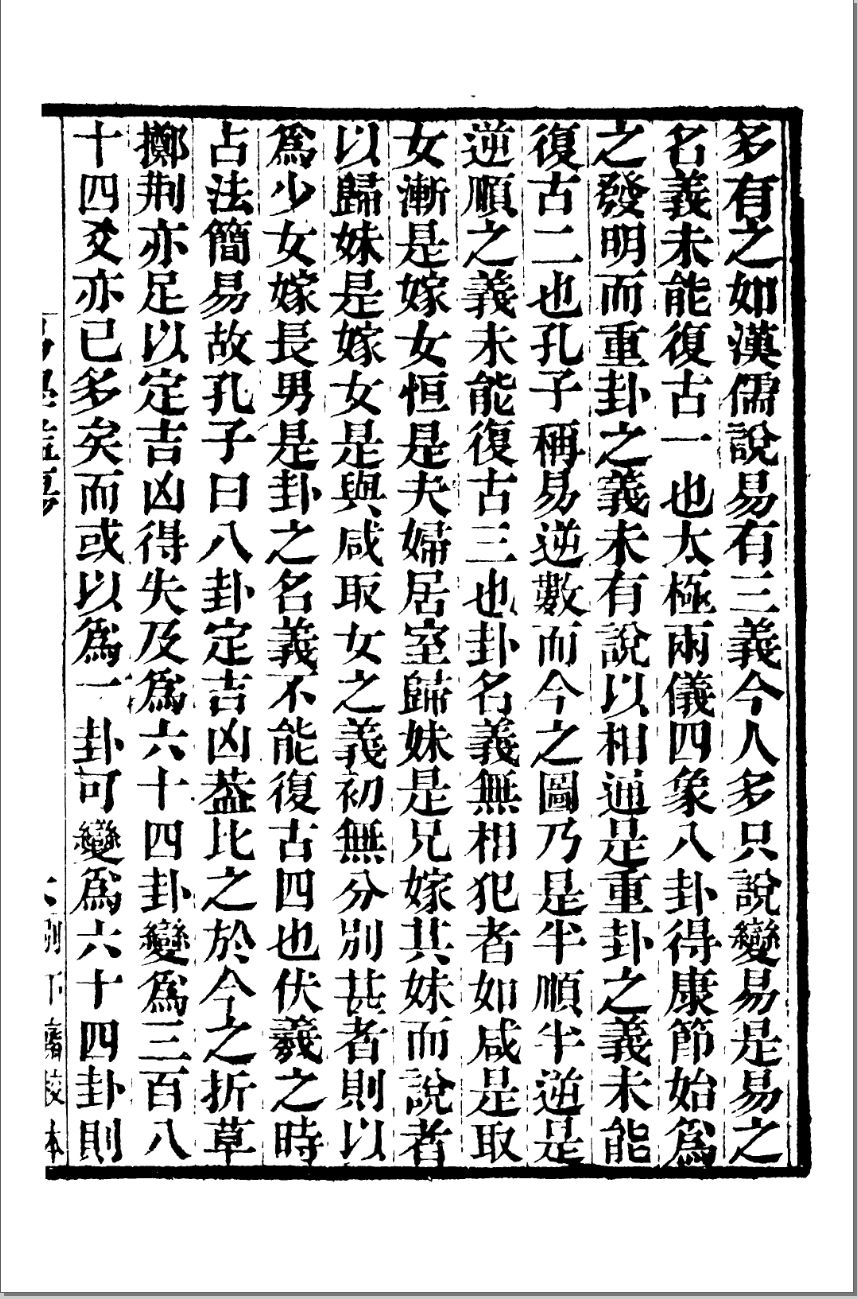 多有之如漢儒說易有三義今人多只說變易是易之
名義未能復古一也太極兩儀四象八卦得康節始爲
之發明而重卦之義未有說以相通是重卦之義未能
復古二也孔子稱易逆數而今之圖乃是半順半逆是
逆順之義未能復古三也卦名義無相犯者如咸是取
女漸是嫁女恒是夫婦居室歸妹是兄嫁其妹而說者
以歸妹是嫁女是與咸取女之義初無分別甚者則以
爲少女嫁長男是卦之名義不能復古四也伏羲之時
占法簡易故孔子曰八卦定吉凶葢比之於今之折草
擲荆亦足以定吉凶得失及爲六十四卦變爲三百八
十四爻亦已多矣而或以爲一卦可變爲六十四卦則